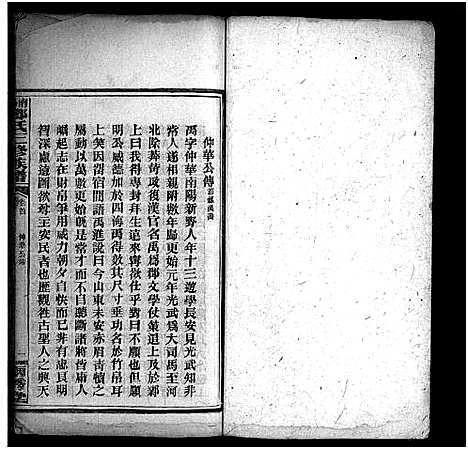 仲華公傳
禹字仲華南陽新野人年十三遊學長安見光武知非
常人遂相親附數年歸更始元年光武爲大司馬至河
北除莽苛政復漢官名禹爲郡文學仗策追上及於鄴
上曰我得專封拜生遠來寧欲仕乎對曰不願也但願
明公威德加於四海禹得效其尺寸垂功名於竹帛耳
上笑因留宿間語禹進說曰今山東未安赤眉青犢之
屬動以萬數更始既是常才而不自聽斷諸將皆庸人
崛起志在財帛爭用威力朝夕自快而已非有忠良明
智深慮遠圖欲尊主安民者也歷觀往古聖人之興天
氏三修族譜
卷首
仲華公傳
一